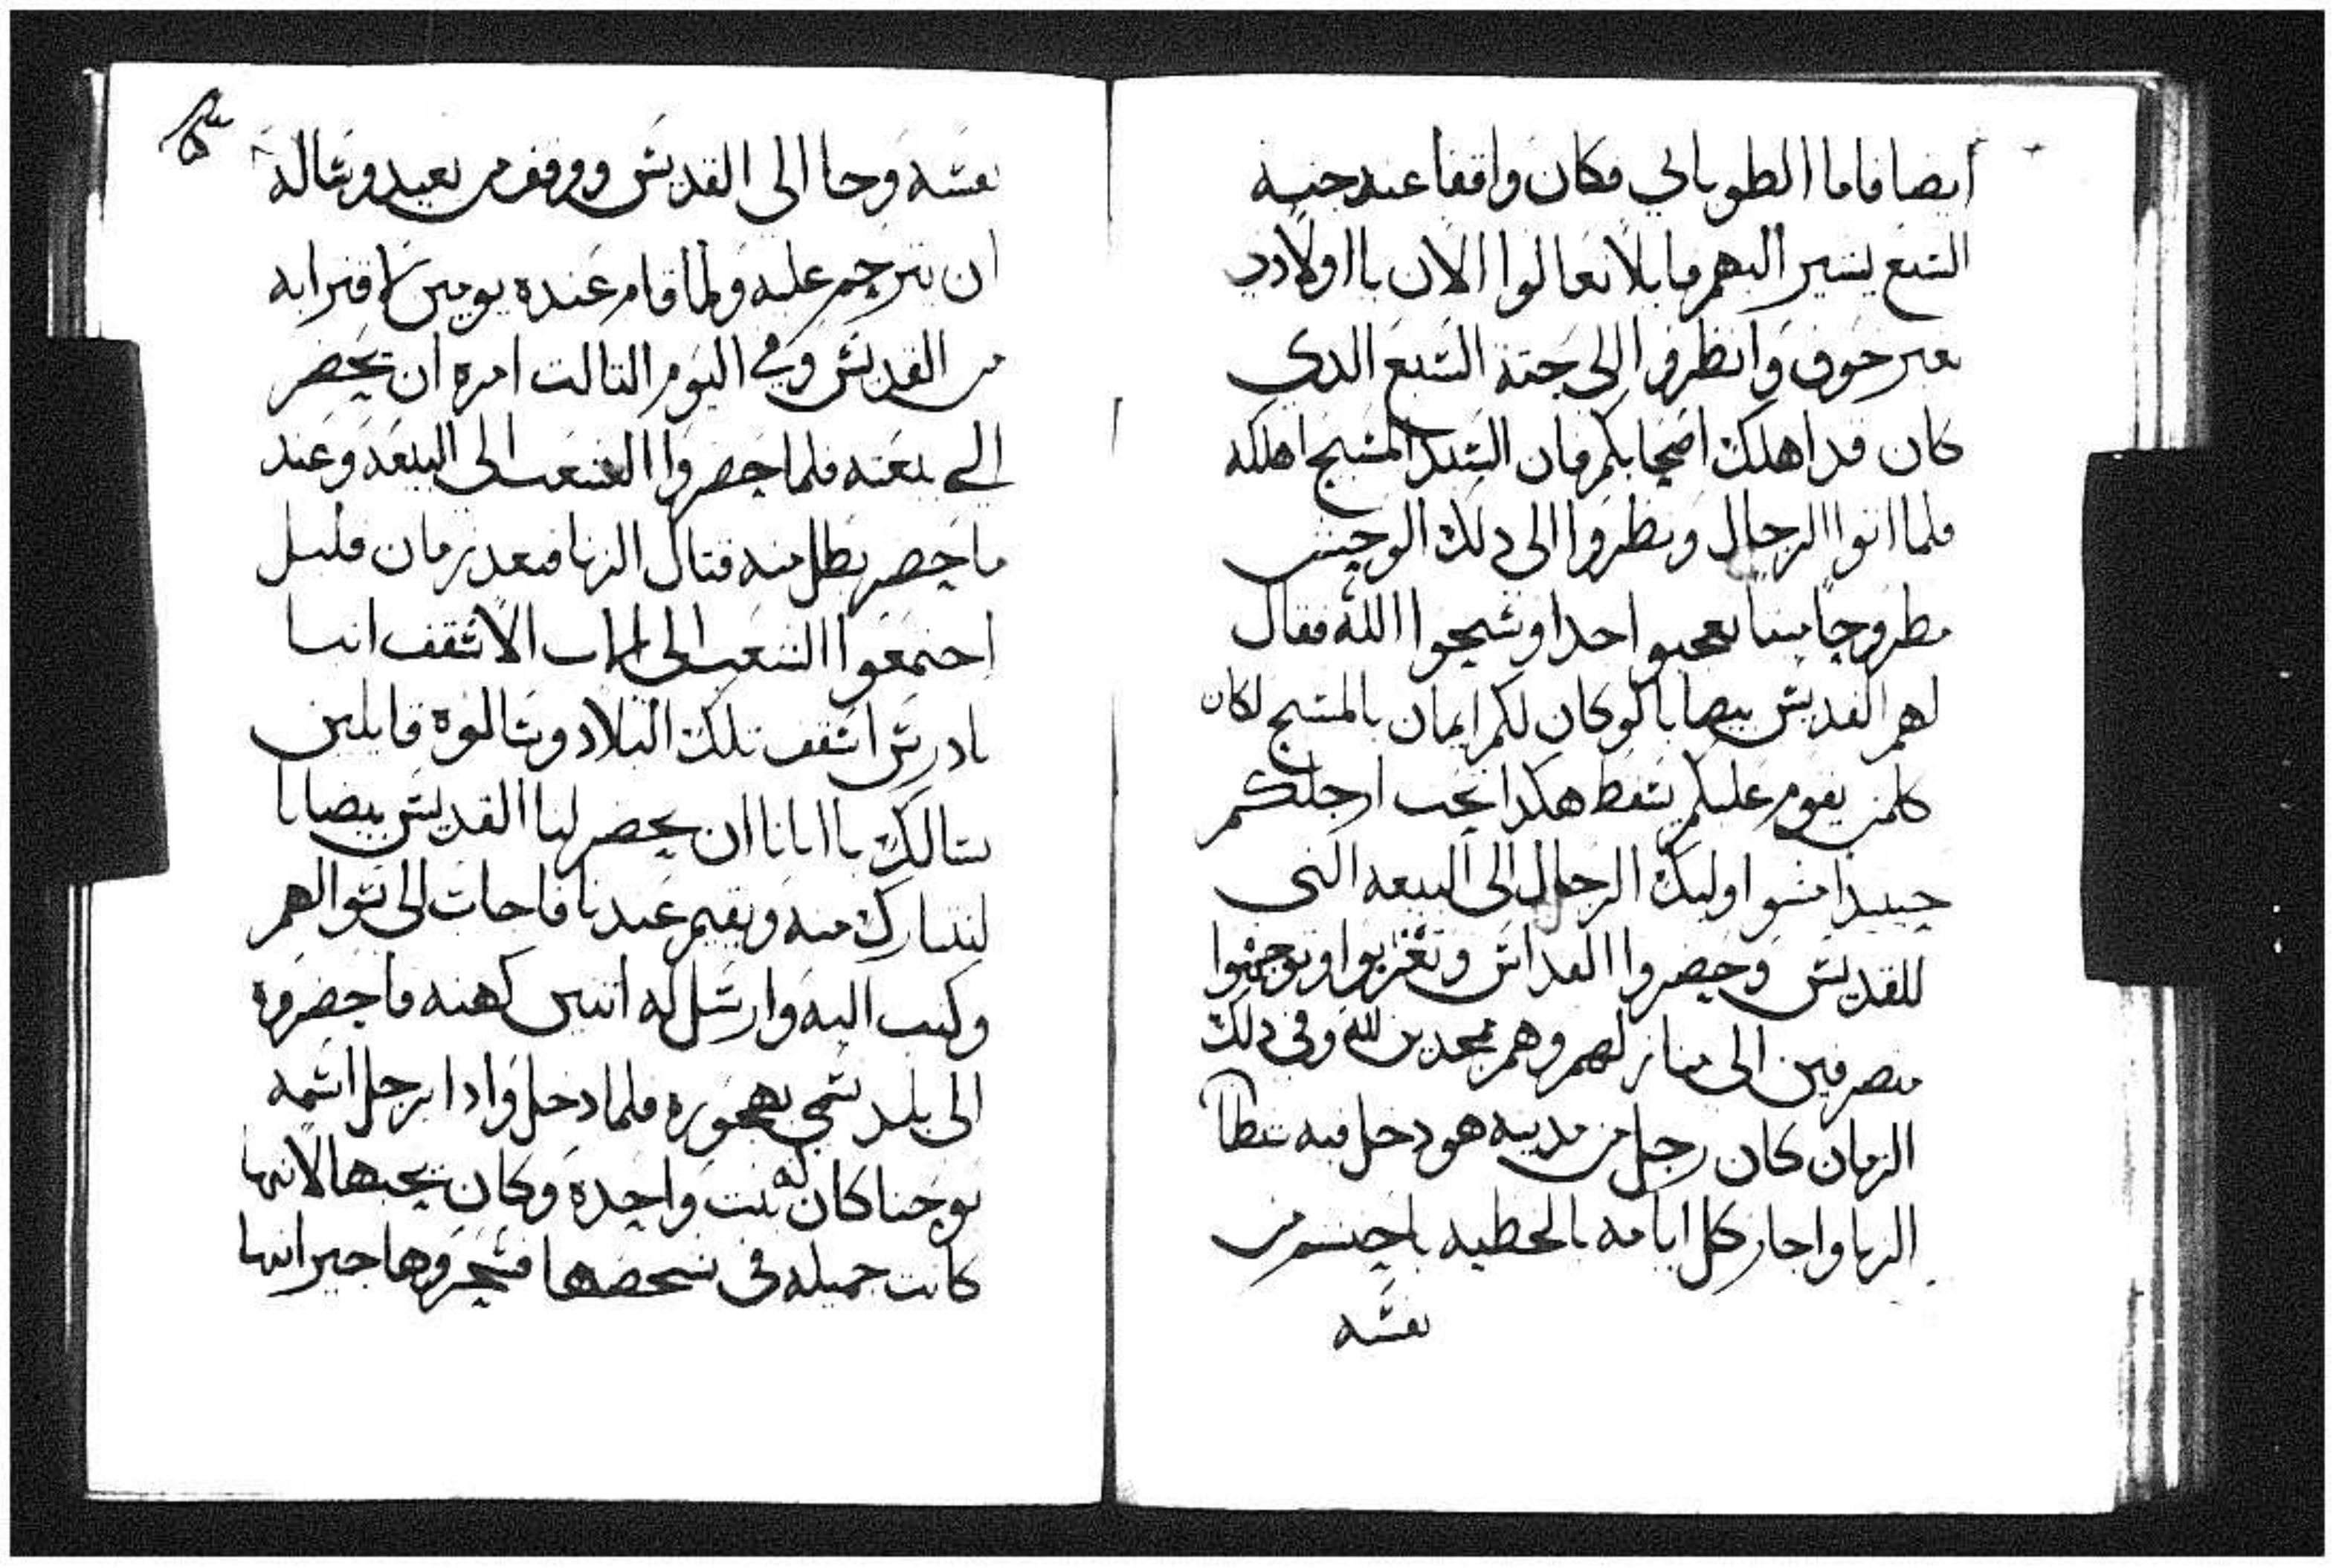 ايضا فاما الطوباني فكان واقفا عند جنبه
السبع يشير اليهم قايلا تعالوا الان يا اولادي
بغير خوف وانظروا الى جتة السبع الدي
كان قد اهلك اصحابكم فان السيد المسيح اهلكه
فلما اتوا الرجال ونظروا الى دلك الوحش
مطروحا ميتا تعجبوا جدا وسبحوا الله فقال
لهم القديس بيصابا لو كان لكم ايمان بالمسيح لكان
كلمن يقوم عليكم يسقط هكدا تحت ارجلكم
حينيد امضوا اوليك الرجال الى البيعه التى
للقديس وحضروا القداس وتقربوا وتوجهوا
منصرفين الى منازلهم وهم ممجدين لله وفى دلك
الزمان كان رجل من مدينه هو دخل فيه شيطان
الزنا واجاز كل ايامه بالخطيه باجسم من
نفسه
نفسه وجا الى القديس ووقف من بعيد وساله
ان يترحم عليه ولما قام عنده يومين لا قترابه
من القديس وفي اليوم التالت امره ان يحضر
الي بيعته فلما حضروا الشعب الى البيعه وعند
ما حضر بطل منه قتال الزنا فبعد زمان قليل
اجتمعوا الشعب الى الاب الاسقف انبا
بادرس اسقف تلك البلاد وسالوه قايلين
نسالك يا ابانا ان يحضر لنا القديس بيصابا
لنتبارك منه ويقيم عندنا فاجاب الى سوالهم
وكتب اليه وارسل له اتنين كهنه فاحضروه
الى بلد تسمي بهجوره فلما دخل وادا برجل اسمه
يوحنا كان له بنت واحده وكان يحبها لانها
كانت جميله فى شخصها فسحروها جيرانها